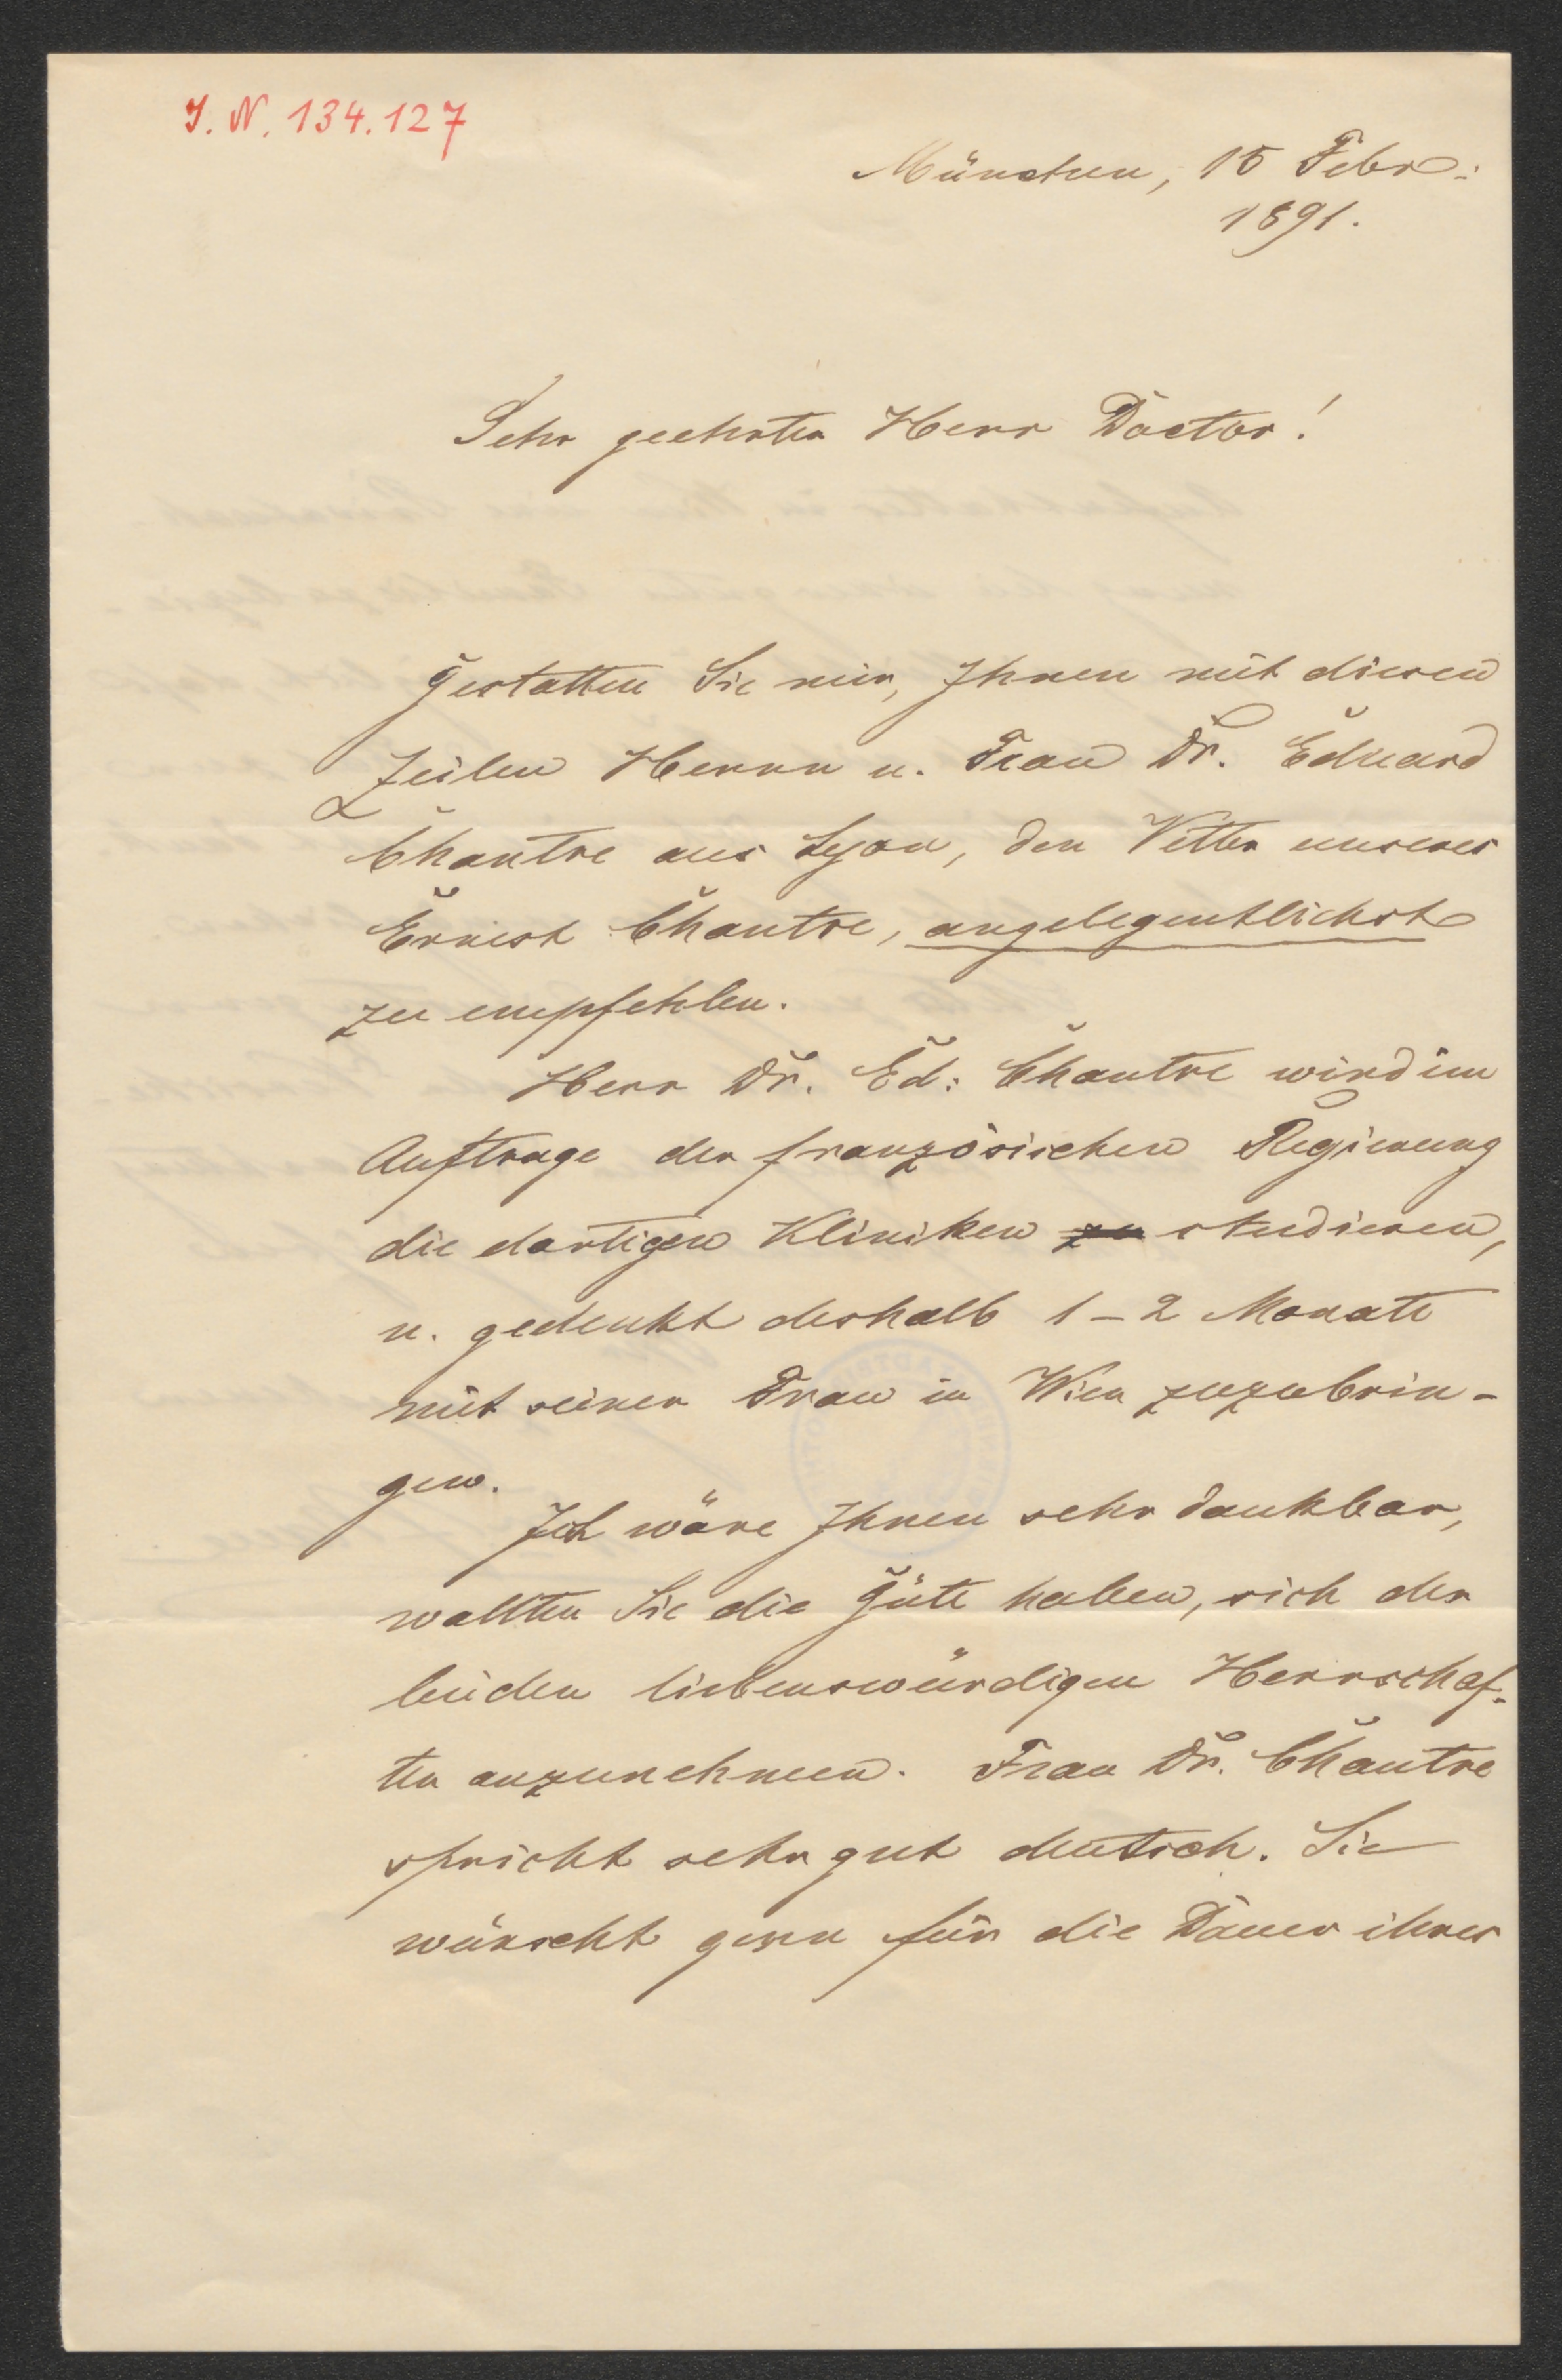 I. N. 134.127
München, 15 Febr:
1891.
Sehr geehrter Herr Doctor!
Gestatten Sie mir, Ihnen mit diesen
Zeilen Herrn u. Frau Dr. Eduard
Chantre aus Lyon, den Vetter unseres
Ernest Chantre, angelegentlichst
zu empfehlen.
Herr Dr. Ed: Chantre wird im
Auftrage der französischen Regierung
die dortigen Kliniken zu studieren,
u. gedenkt deshalb 1-2 Monate
mit seiner Frau in Wien zuzubrin-
gen.
Ich wäre Ihnen sehr dankbar,
wollten Sie die Güte haben, sich der
beiden liebenswürdigen Herrschaf-
ten anzunehmen. Frau Dr. Chantre
spricht sehr gut deutsch. Sie
wünscht gern für die Dauer ihres